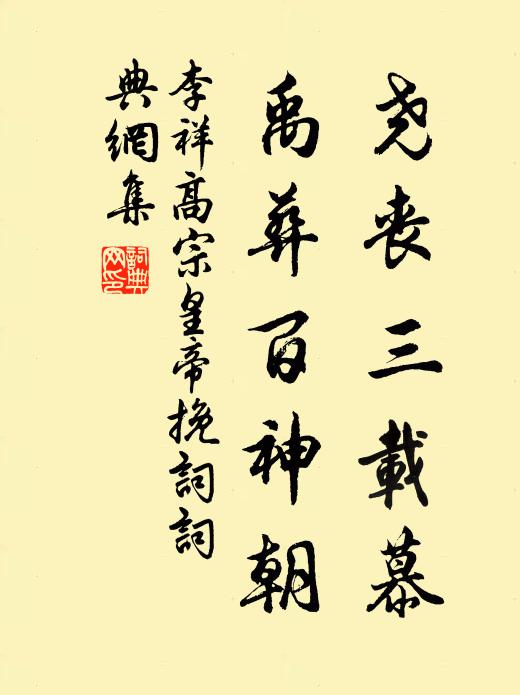 尧丧三載慕
禹葬百神朝
李祥高宗皇帝挽詞詞
典網集
詞典網印